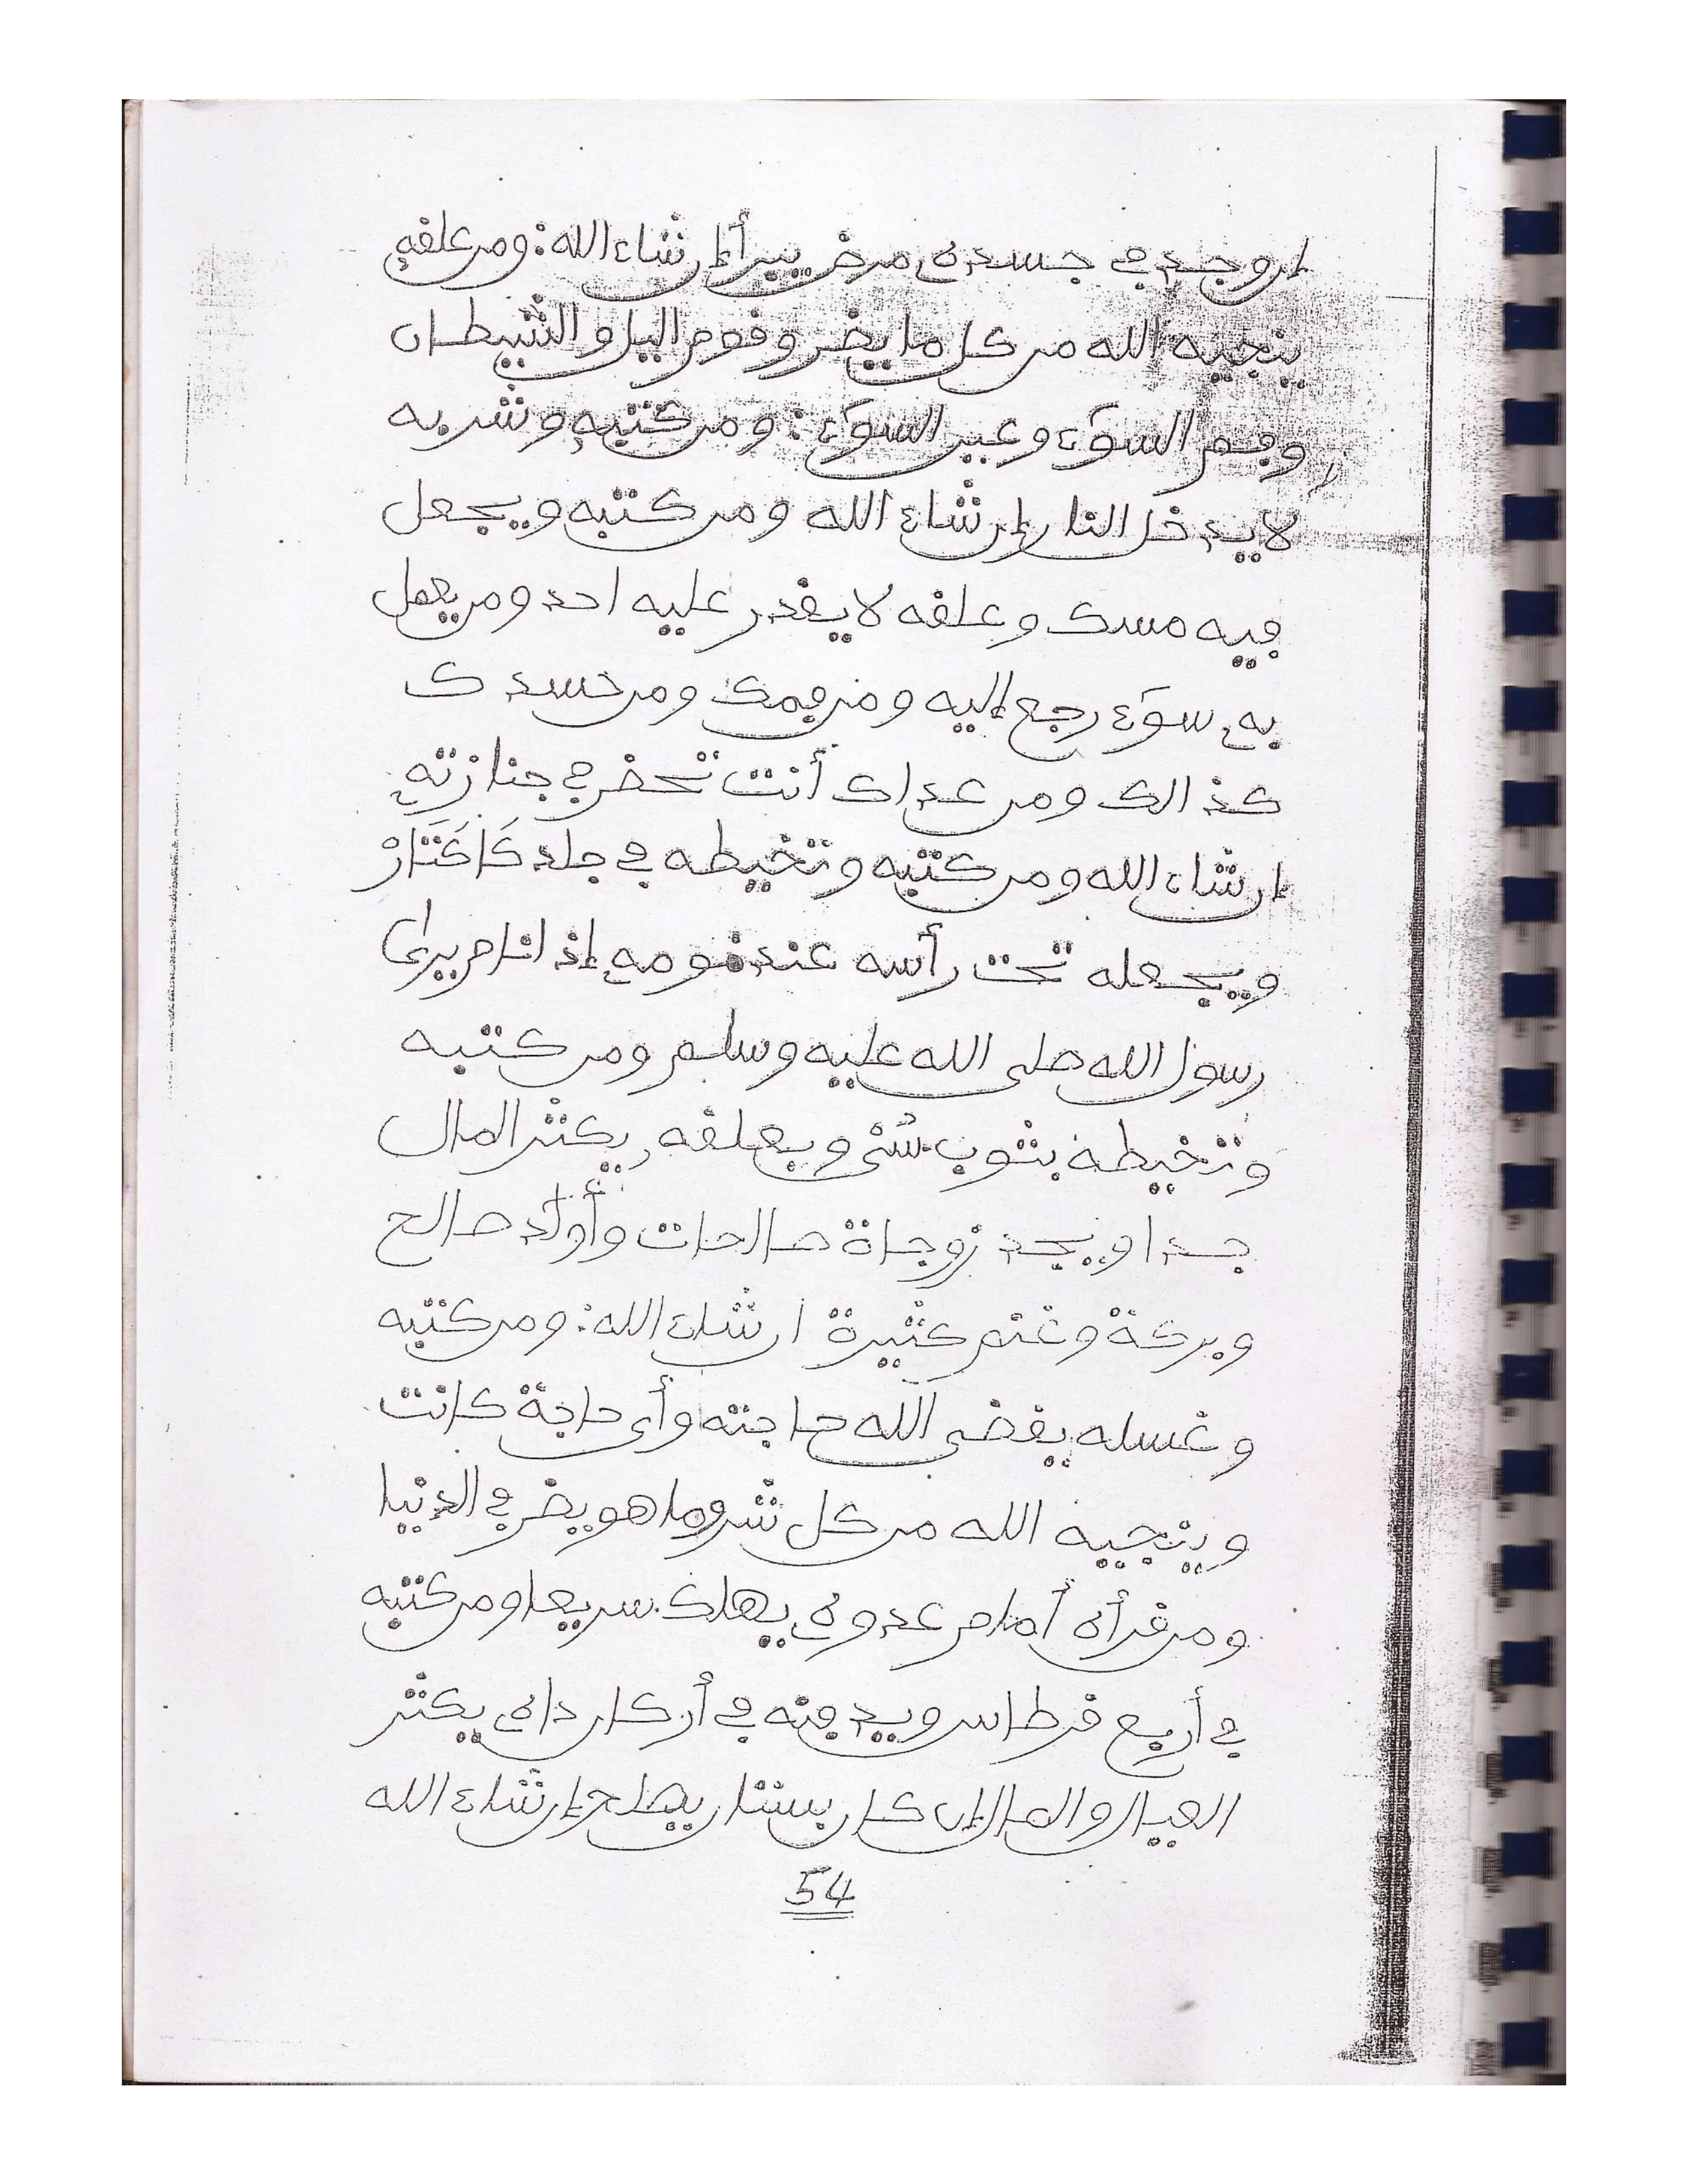 إن وجد في جسده مرض يبرأ إن شاء الله: ومن علقه
ينجيه الله من كل ما يضر وقوم اليل والشيطان
وفم السوء وعين السوء: ومن كتبه وشربه
لا يدخل النار إن شاء الله ومن كتبه ويجعل
فيه مسك وعلقه لا يقدر عليه احد ومن يعمل
به سوء رجع إليه ومن فمك ومن حسدك
كذالك ومن عداك أنت تحضر في جنازته
إن شاء الله ومن كتبه وتخيطه في جلد كَاكَتَارْ
ويجعله تحت رأسه عند نومه إذ انام يرى
رسول الله صلى الله عليه وسلم ومن كتبه
وتخيطه بثوب شئ ويعلقه يكثر المال
جدا ويجد زوجاة صالحات وأولد صالح
وبركة وغنم كثيرة ان شاء الله: ومن كتبه
وغسله يقضي الله حاجته وأي حاجة كانت
وينجيه الله من كل شر وما هو يضر في الدنيا
ومن قرأه أمام عدوه يهلك سريعا ومن كتبه
في أربع قرطاس ويدفنه في أركان داره يكثر
العيال والمال إن كان بستان يصلح إن شاء الله
54